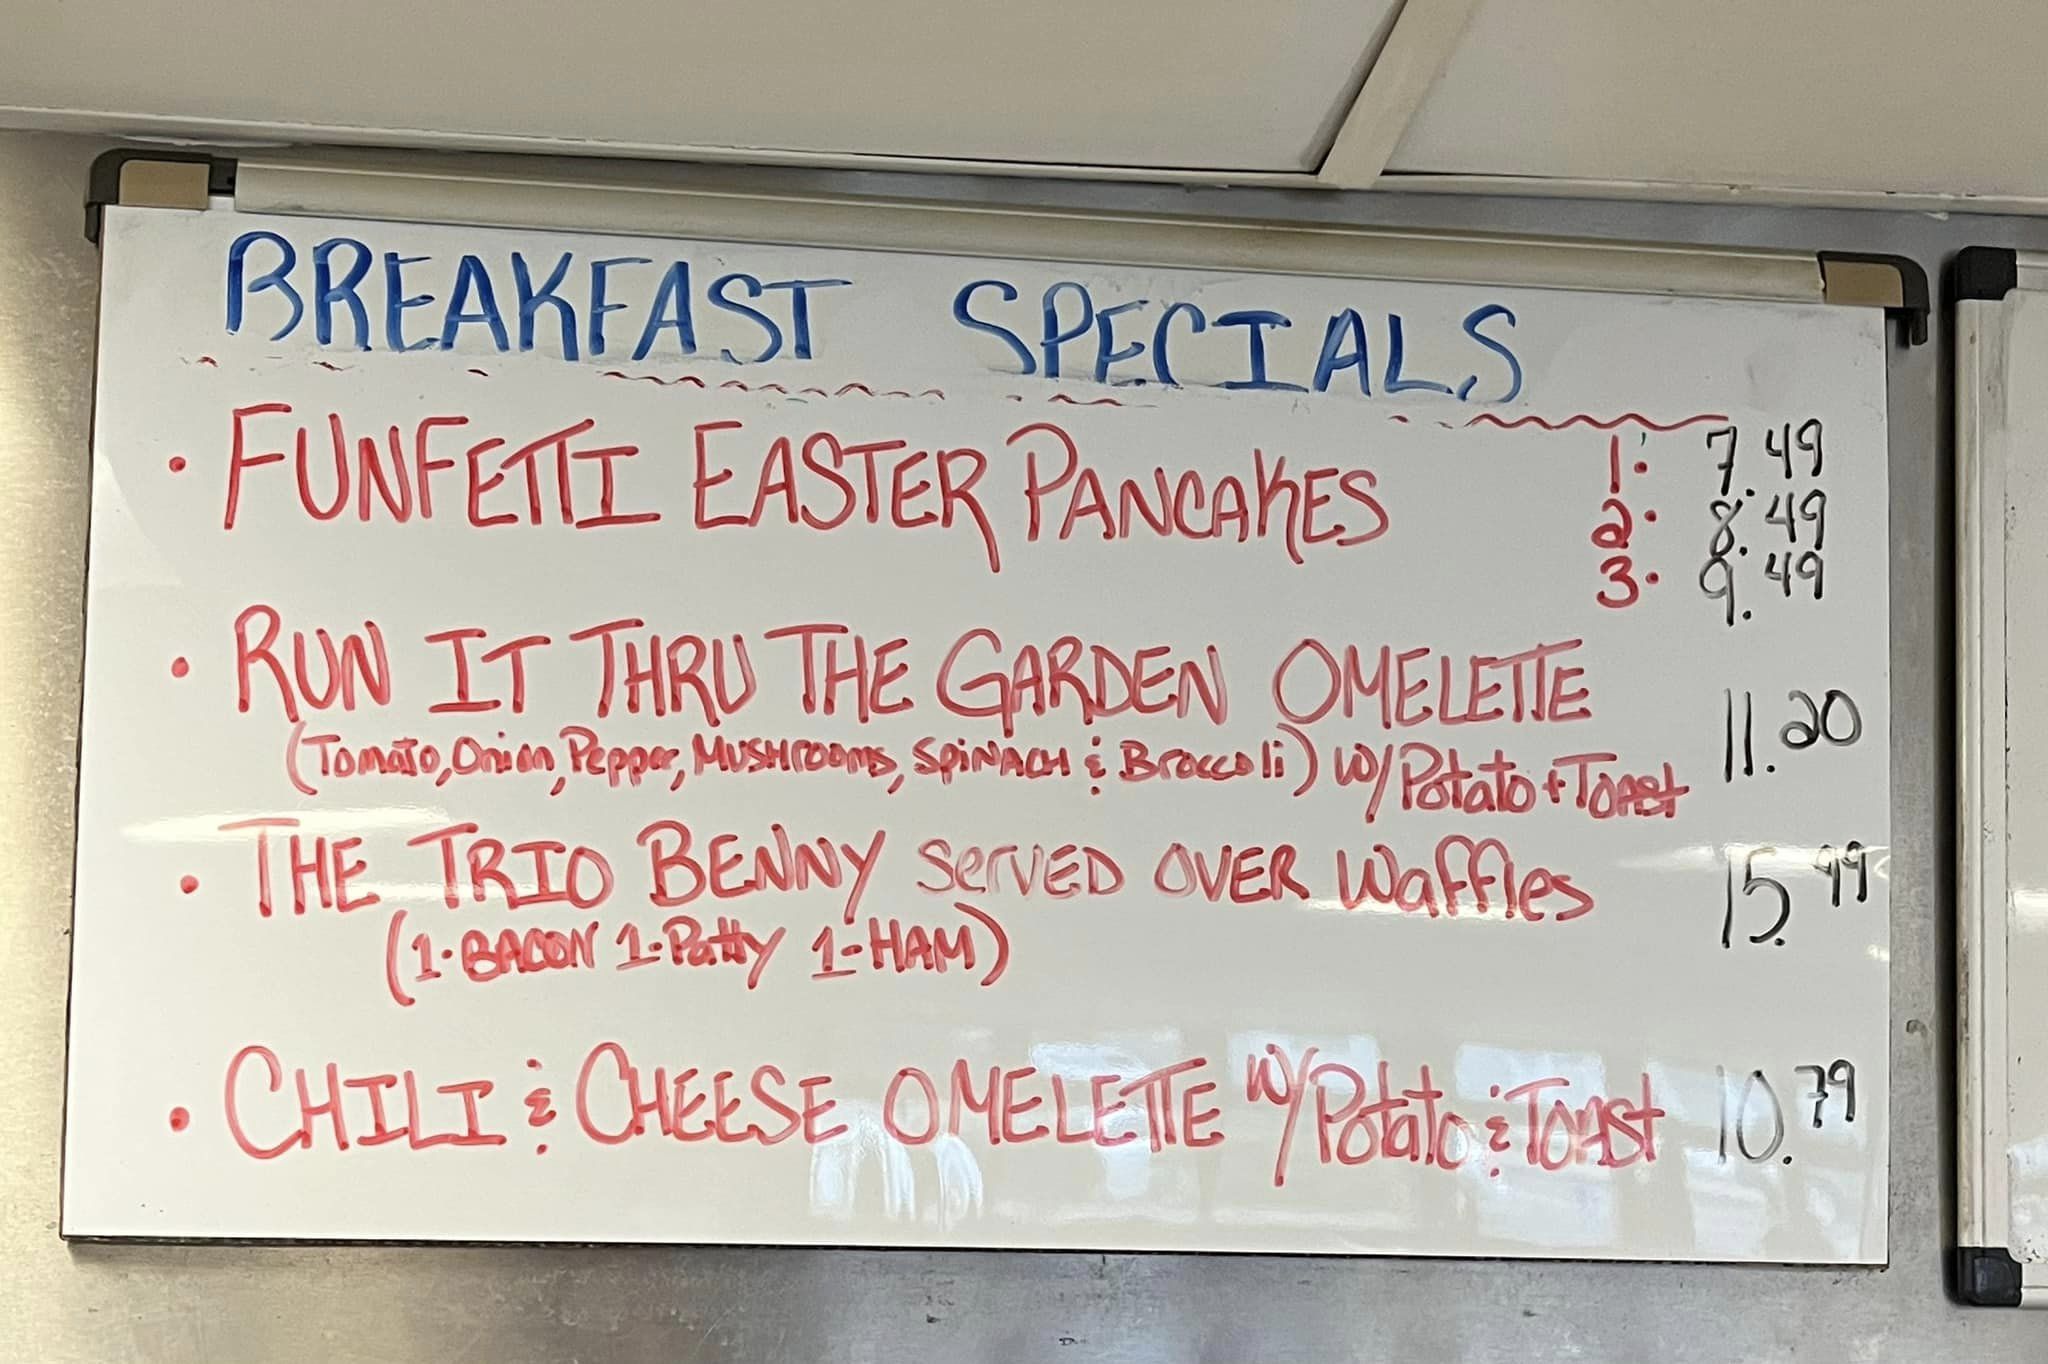 BREAKFAST SPECIALS
• FUNFETTI EASTER PANCAKES 1. 7.49
2. 8.49
3. 9.49
• RUN IT THRU THE GARDEN OMELETTE 11.20
(Tomato, Onion, Pepper, MUSHROOMS, SPINACH & Broccoli) w/ Potato + Toast
• THE TRIO BENNY SERVED OVER Waffles 15.99
(1. BACON 1. Patty 1-HAM)
• CHILI & CHEESE OMELETTE w/ Potato & Toast 10.79